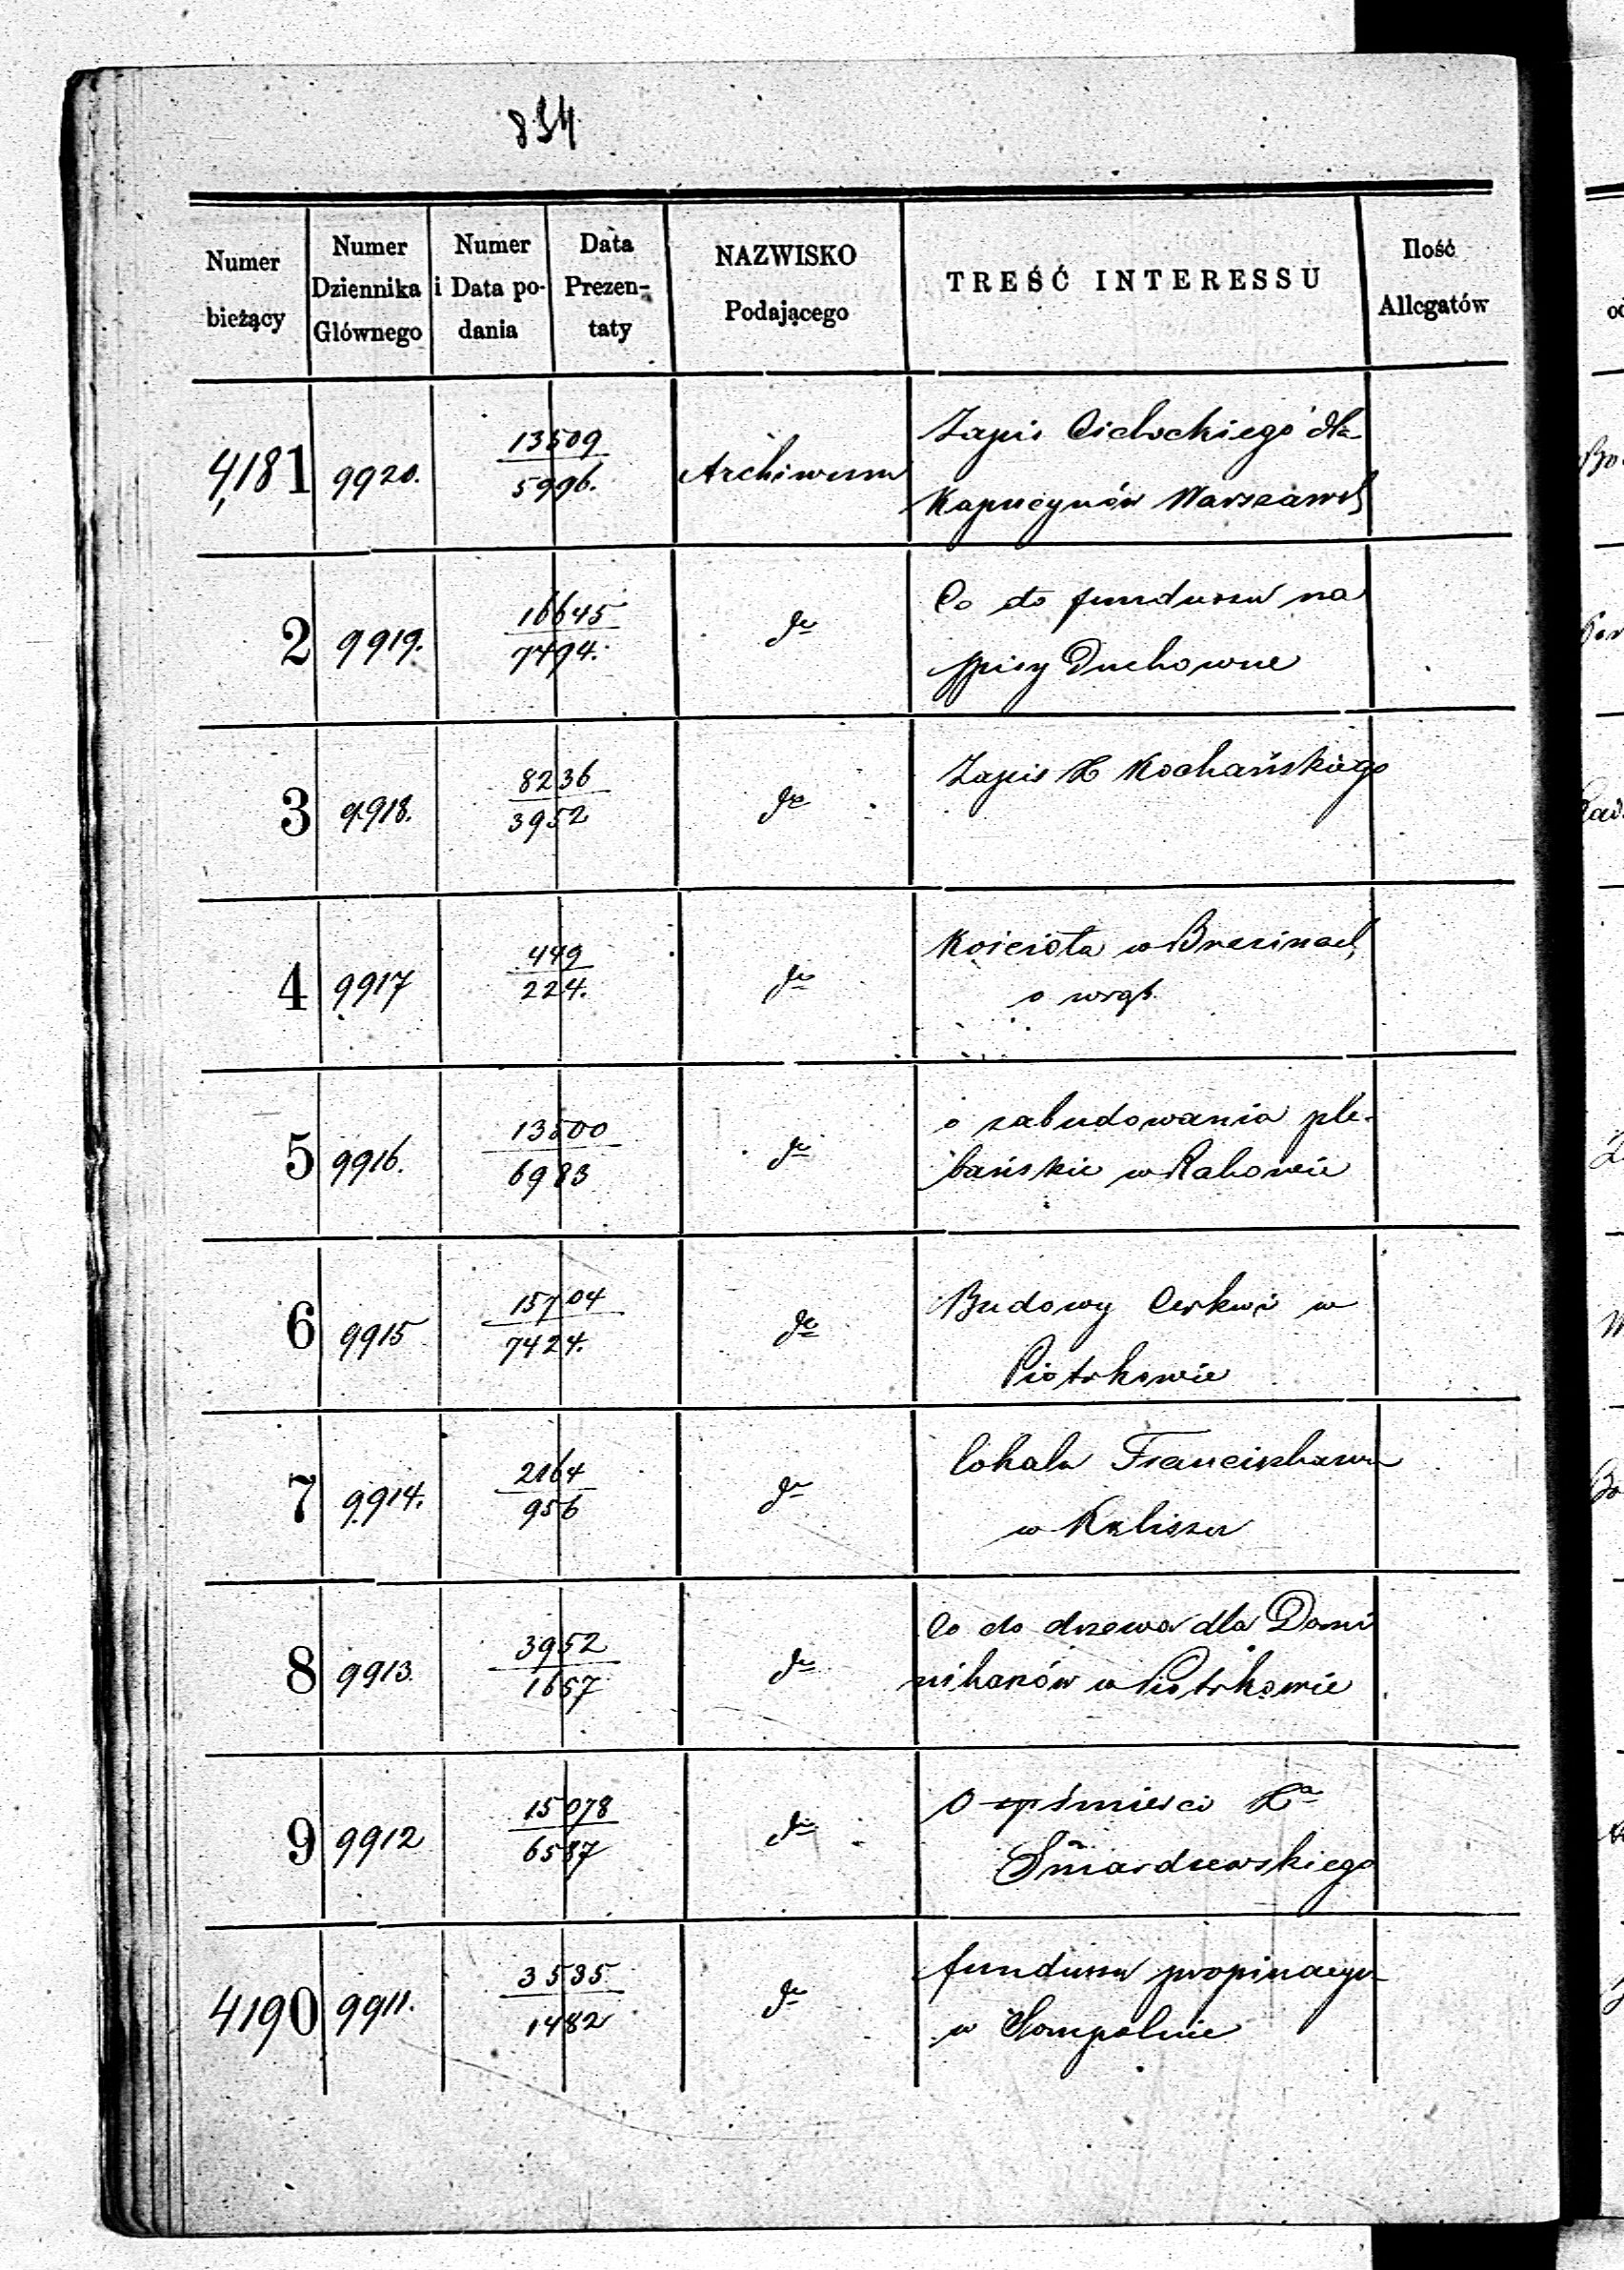 834
Numer bieżący | Numer Dziennika Głównego | Numer i Data podania | Data Prezentaty | NAZWISKO Podającego | TREŚĆ INTERESSU | Ilość Allegatów
4,181 | 9920. | 13509 / 5996. | Archiwum | Zapis Cichockiego dla
Kapucynów Warszawsk
2 | 9919. | 16645 / 7494. | do | Co do funduszu na
spisy Duchowne
3 | 9918. | 8236 / 3952 | do | Zapis X Kochańskiego
4 | 9917 | 449 / 224. | do | Kościoła w Brzezinach
o
5 | 9916. | 13500 / 6983 | do | o zabudowania ple-
bańskie w Rakowie
6 | 9915 | 15704 / 7424. | do | Budowy Cerkwi w
Piotrkowie
7 | 9914. | 2164 / 956 | do | lokalu Franciszkanów
w Kaliszu
8 | 9913. | 3952 / 1657 | do | Co do drzewa dla Domi
nikanów w Piotrkowie
9 | 9912 | 15078 / 6587 | do | O śmierci Xa
Śniardzewskiego
4190 | 9911. | 3535 / 1482 | do | funduszu propinacyi
w Sompolnie